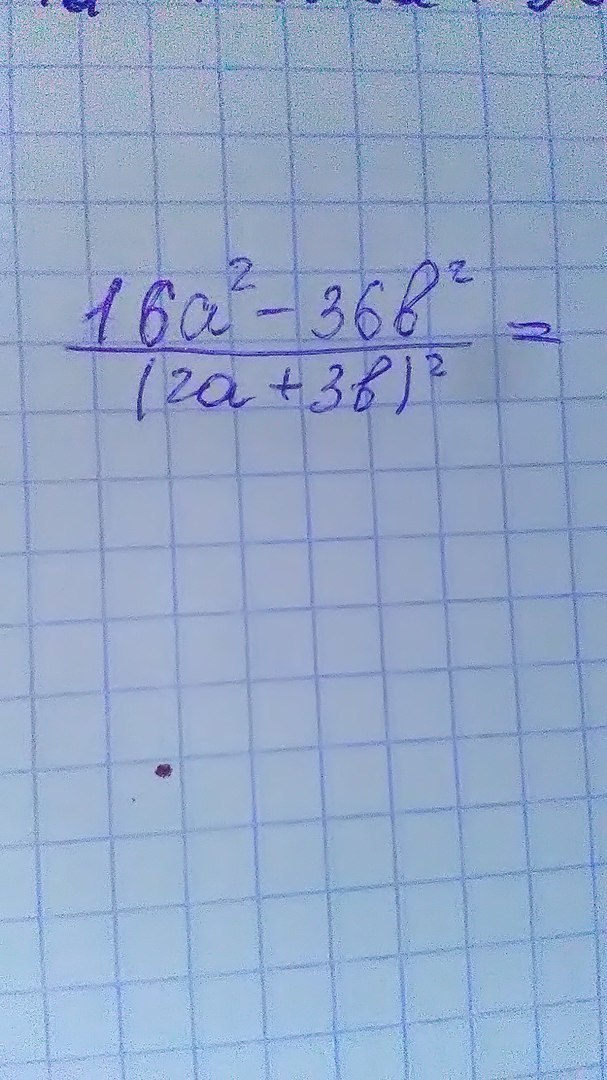 16a² - 36b²
(2a + 3b)² =